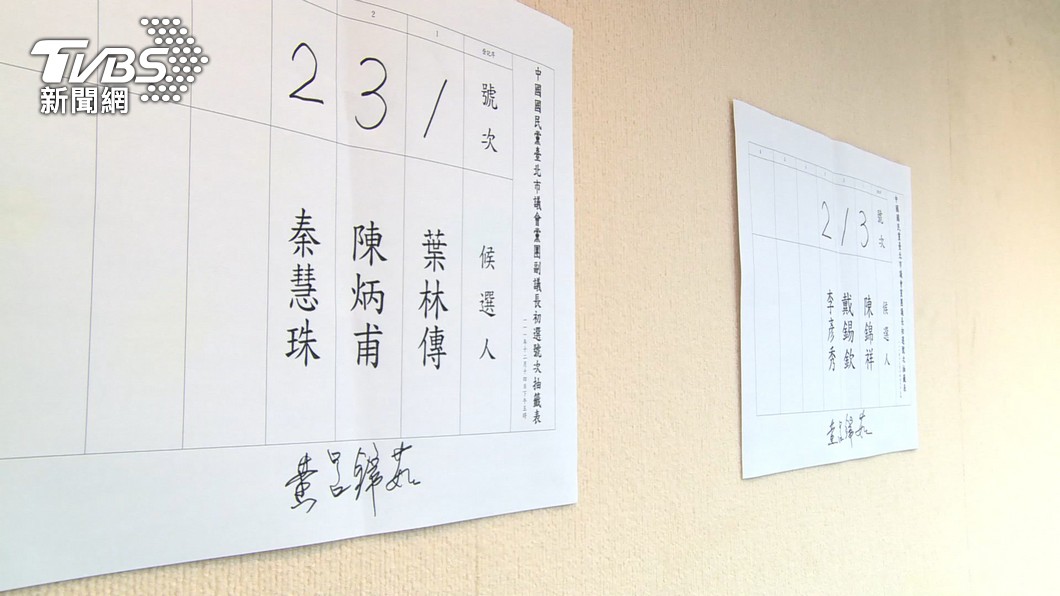 TVBS
新聞網
中國國民黨臺北市議會黨團副議長初選號次抽籤表
一一一年十二月十四日下午五時
登記序
號次
候選人
1
1
葉林傳
2
3
陳炳甫
2
秦慧珠
中國國民黨臺北市議會黨團議長初選號次抽籤表
號次
候選人
3
陳錦祥
1
戴錫欽
2
李彥秀